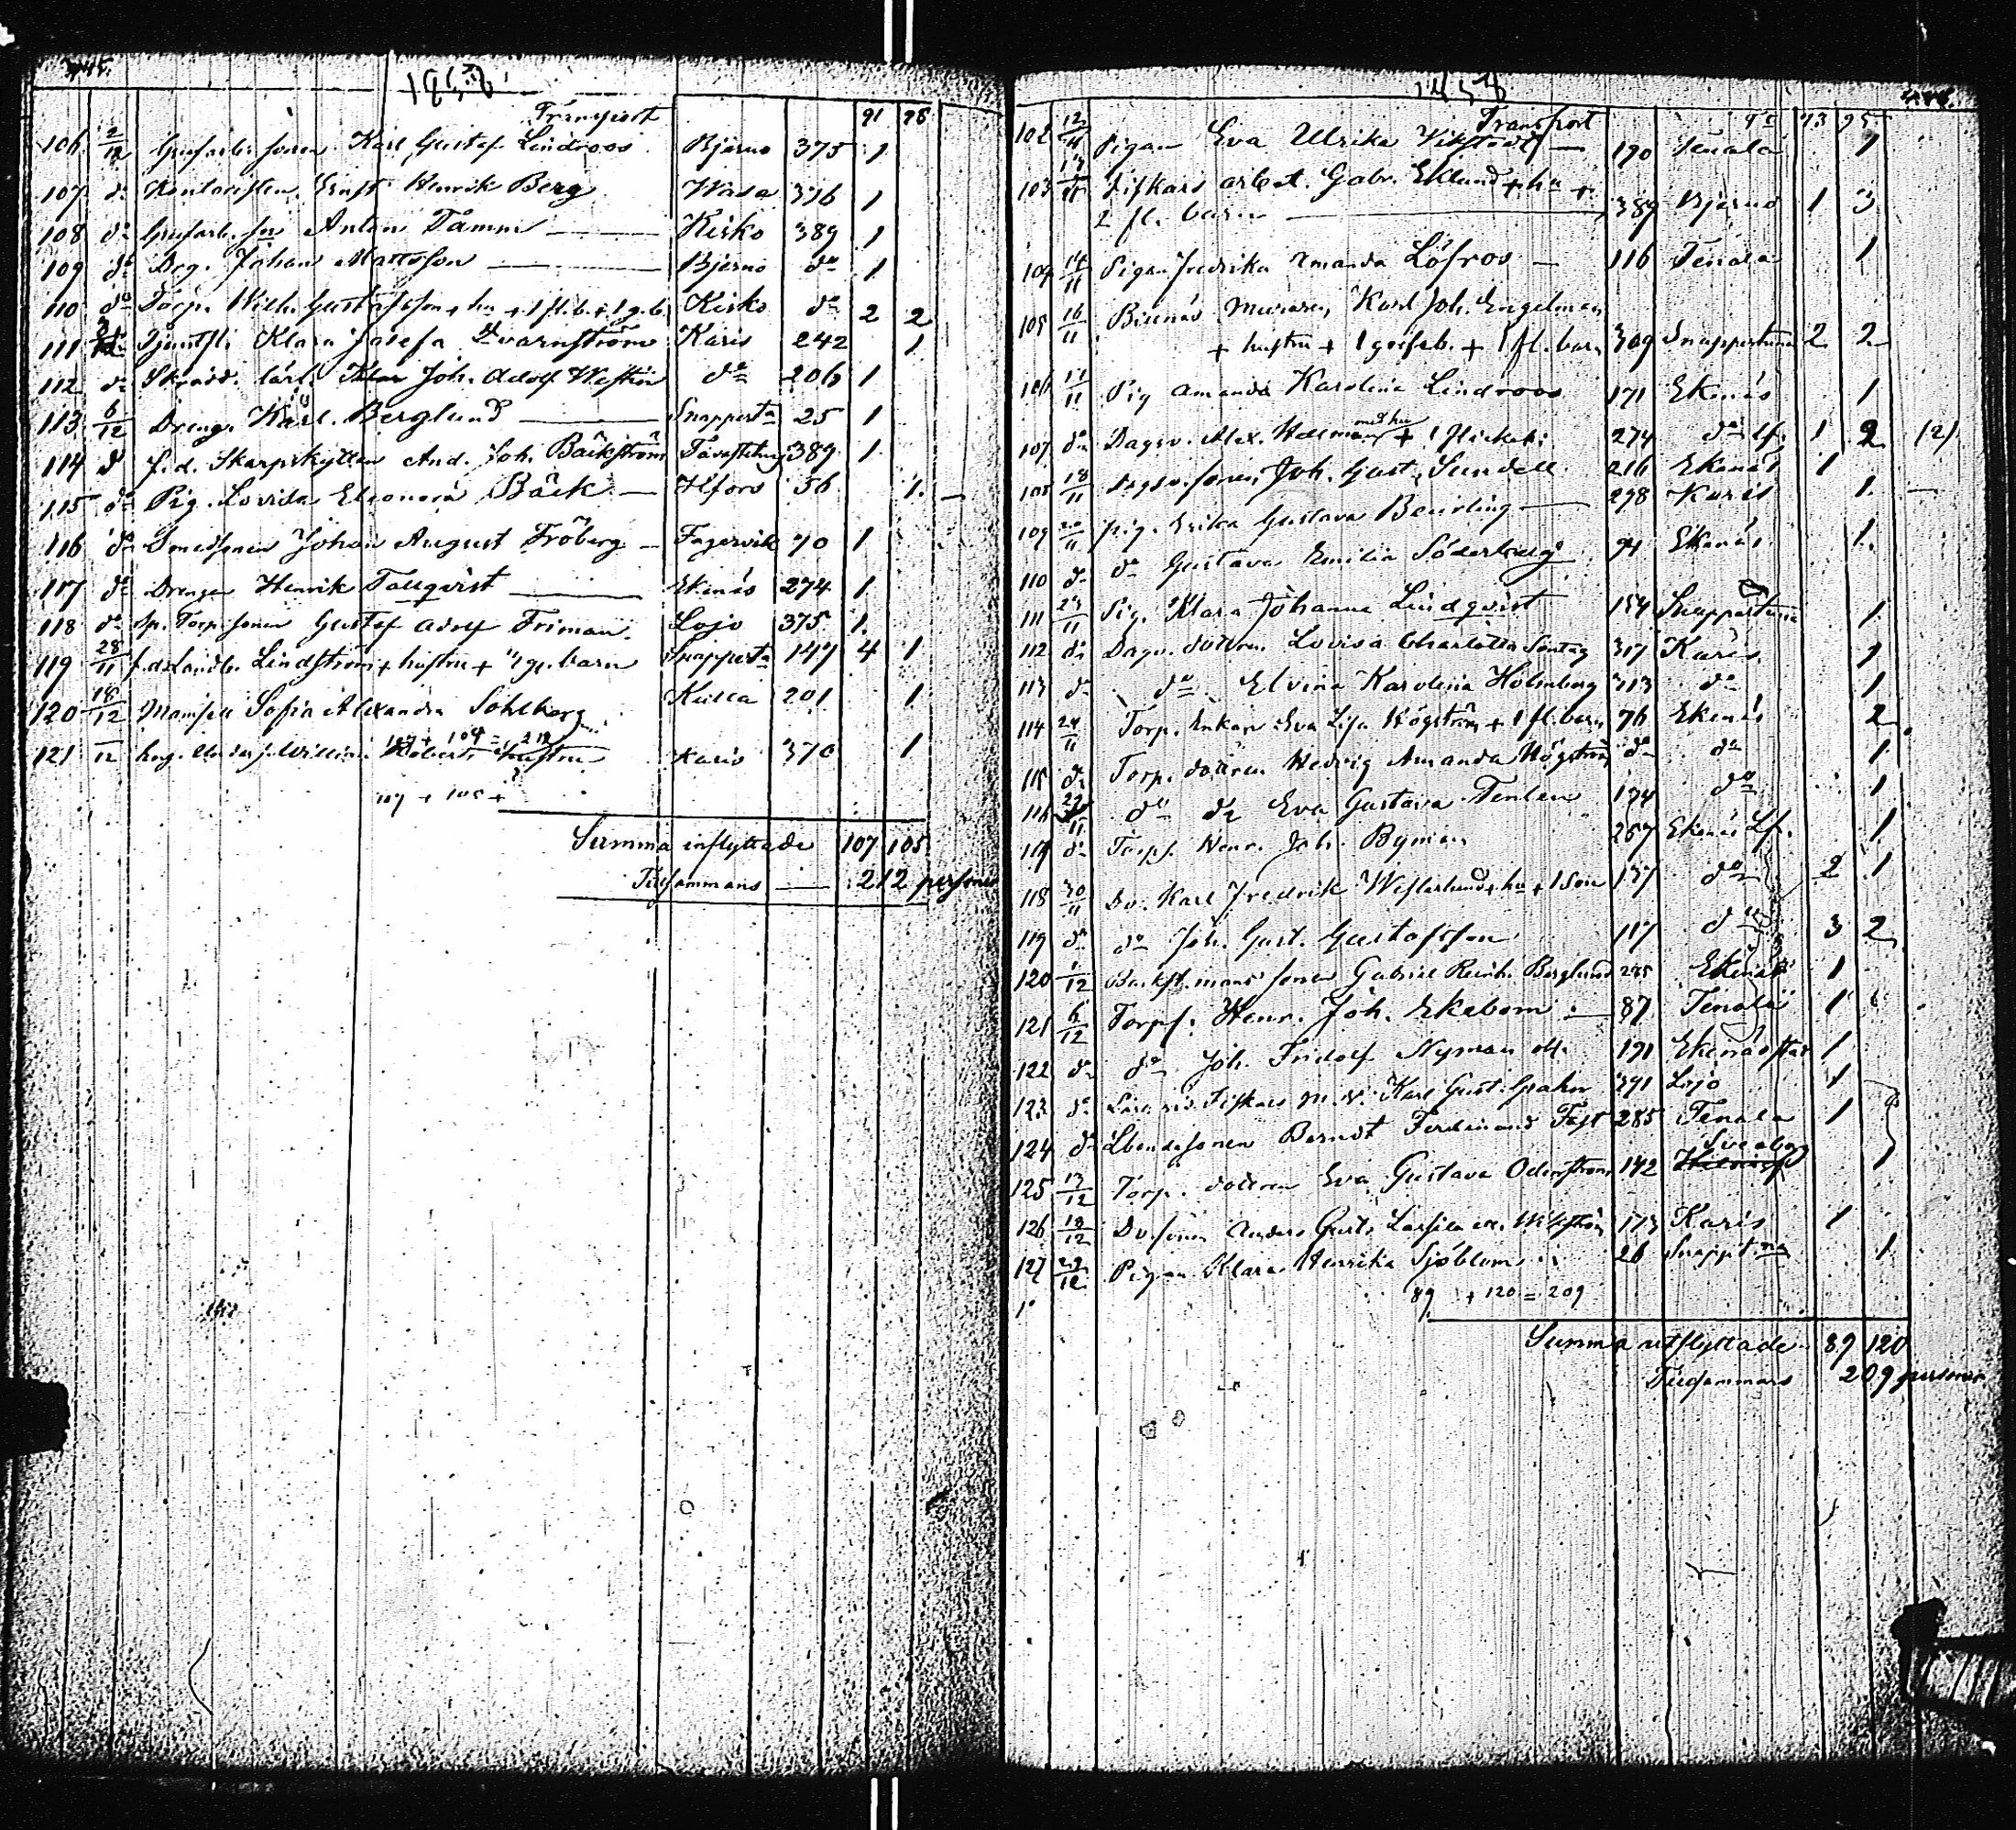 1858
Transport 91 98
106 2/12 Grufarb. sonen Karl Gustaf Lindroos Bjerno 375 1
107 do Kontoristen Ernst Henrik Berg Wasa 376 1
108 do Grufarb. sn Anton Tamm Kisko 389 1
109 do Drg. Johan Mattsson Bjerno do 1
110 do Torp. Wilh. Gustafsson + hu + 1 fl.b. + 1 g.b. Kisko do 2 2
111 Klara Josefa Qvarnström Karis 242 1
112 do Skrädd. lärl. Joh. Adolf do 206 1
113 6/12 Dreng. Karl Berglund Snapperta 25 1
114 d f.d. Skarpskytten And. Joh. Bäckström Tavastehus 389 1
115 do Pig. Lovisa Eleonora Bäck Hfors 56 1
116 do Johan August Fröberg Fagervik 70 1
117 do Drengen Henrik Tallqvist Ekenäs 274 1
118 do Torp. sonen Gustaf Adolf Friman Lojo 375 1
119 28/11 f.d. Landb. Lindström + hustru + gg. barn Snapperta 147 4 1
120 18/12 Mamsell Sofia Alexandra Sohlberg Kulla 201 1
107 + 104 = 212
121 12 Roberts hustru Karis 370 1
107 + 105 +
Summa inflyttade 107 105
Tillsammans 212 personer
1858
Transport 93 95
102 12/11 Pigan Eva Ulrika Vikstedt 190 Tenala 1
103 Fiskars arbet. Gabr. Eklund + hu +
2 fl. barn 389 Bjerno 1 3
109 14/11 Pigan Fredrika Amanda Löfros 116 Tenala 1
105 16/11 Billnäs Muraren Karl Joh. Engelman
+ hustru + 1 gosseb. + 1 fl. barn 309 Snappertuna 2 2
106 17/11 Pig Amanda Karolina Lindroos 171 Ekenäs 1
107 do Dagsv. Alex. Hellman med hu + 1 flickeb. 274 do lf. 1 2 (2)
108 18/11 Dagsv. sonen Joh. Gust. Sundell 216 Ekenäs 1
109 20/11 pig. Erika Gustava Beurling 298 Karis 1
110 do do Gustava Emilia Söderberg 94 Ekenäs 1
111 23/11 Pig. Klara Johanna Lindqvist 154 Snappertuna 1
112 do Dagv. dottren Lovisa Charlotta Sontag 317 Karis 1
113 do do Elvina Karolina Holmberg 313 do 1
114 24/11 Torp. Enkan Eva Lisa Högström + 1 fl. barn 76 Ekenäs 2
115 do Torp. dottren Hedvig Amanda Högström do do 1
116 do do Eva Gustava Tenlen 174 do 1
117 do Torp. Henr. Joh. Byman 267 Ekenäs Lf. 1
118 30/11 Dv. Karl Fredrik Westerlund + hu + 1 son 137 do 2 1
119 do do Joh. Gust. Gustafsson 117 do 3 2
120 1/12 Backst. mans sonen Gabriel Reinh. Berglund 285 Ekenäs 1
121 6/12 Torps. Henr. Joh. Ekebom 87 Tenala 1
122 do do Joh. Fridolf Nyman 191 Ekenäs stad 1
123 do Fiskars Karl Gust. Grahn 391 Lojo 1
124 do Berndt Ferdinand Fast 285 Tenala 1
125 13/12 Torp. dottren Eva Gustava Odenström 142 Sveaborg 1
126 18/12 Dv. sonen Anders Gust. 173 Karis 1
127 29/12 Pigan Klara Henrika Sjöblom 26 Snappt.na 1
89 + 120 = 209
Summa utflyttade 89 120
Tillsammans 209 personer